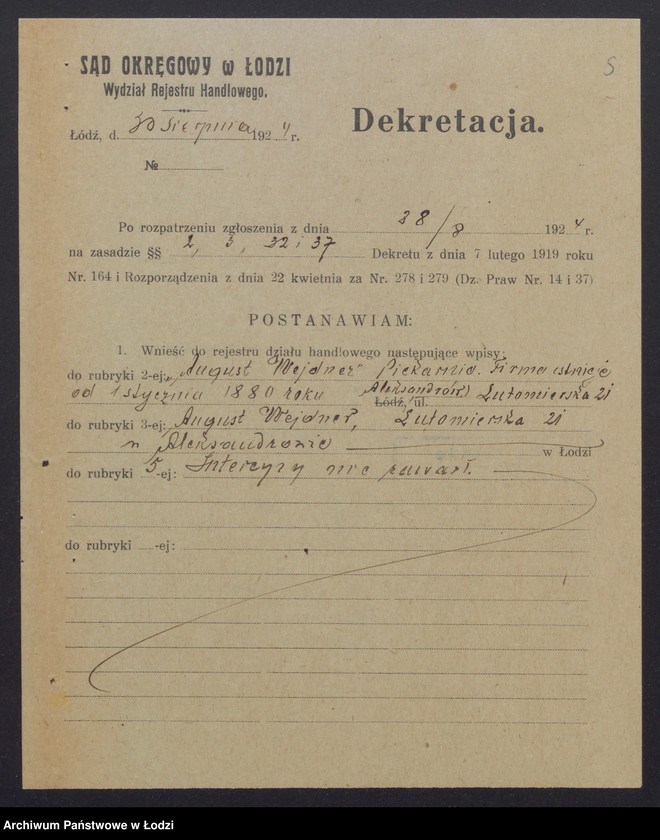 5
SĄD OKRĘGOWY w ŁODZI
Wydział Rejestru Handlowego.
Dekretacja.
Łódź, d. 30 Sierpnia 1924 r.
№
Po rozpatrzeniu zgłoszenia z dnia 28/8 1924 r.
na zasadzie §§ 2, 3, 32 i 37 Dekretu z dnia 7 lutego 1919 roku
Nr. 164 i Rozporządzenia z dnia 22 kwietnia za Nr. 278 i 279 (Dz. Praw Nr. 14 i 37)
POSTANAWIAM:
1. Wnieść do rejestru działu handlowego następujące wpisy:
do rubryki 2-ej: „August Wejdner" Piekarnia. Firma istnieje
od 1 stycznia 1880 roku Łódź, ul. Aleksandrów Lutomierska 21
do rubryki 3-ej: August Wejdner, Lutomierska 21
w Aleksandrowie w Łodzi
do rubryki 5-ej: Intercyzy nie zawarł.
do rubryki -ej:
Archiwum Państwowe w Łodzi